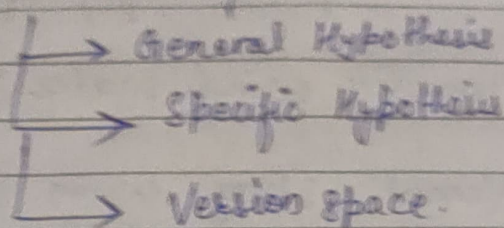 General Hypothesis
Specific Hypothesis
Version space.